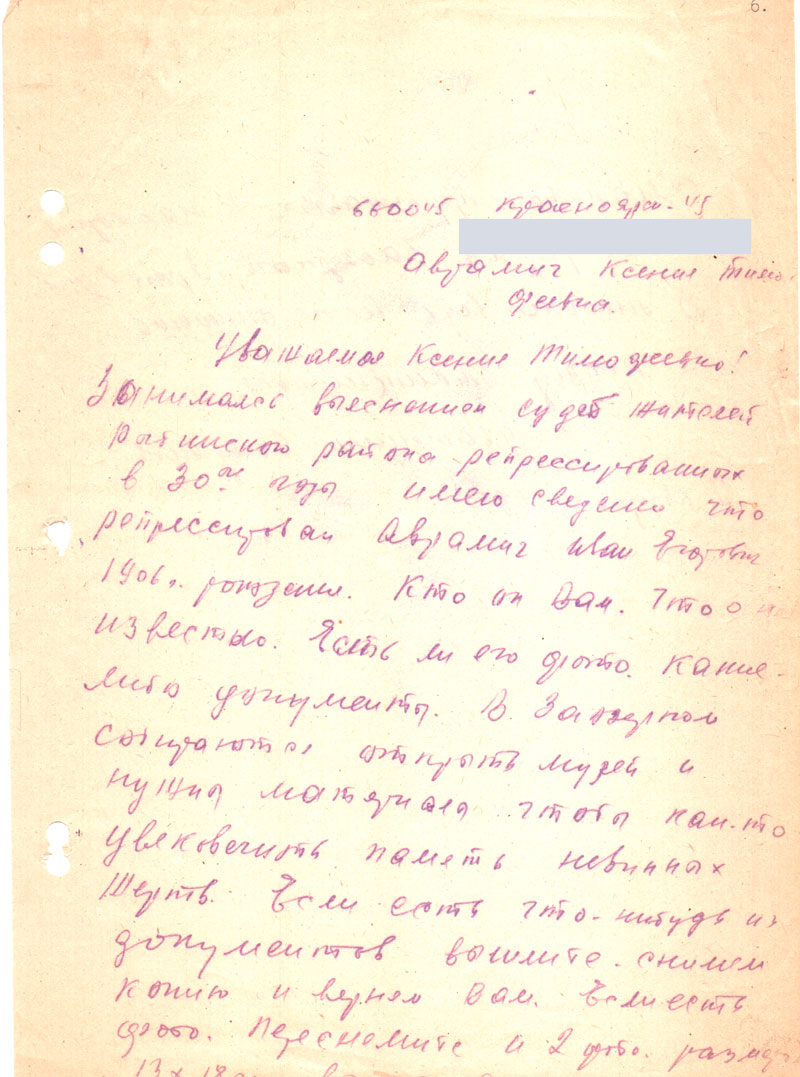 6.
660045 Красноярск-45
Аврамич Ксение Тимо
феевна.
Уважаемая Ксение Тимофеевна!
Занимаясь выяснением судеб жителей
Рыбинского района репрессированных
в 30ые годы имею сведение что
репрессирован Аврамич Иван Егорович
1906 г. рождения. Кто он Вам. Что о н
известно. Есть ли его фото. Какие-
либо документы. В Заозерном
собираются открыть музей и
нужны материала чтобы как-то
увековечить память невинных
жертв. Если есть что-нибудь из
документов вышлите. снимем
копию и вернем Вам. Если есть
фото. Переснимите и 2 фото. разме
13х18